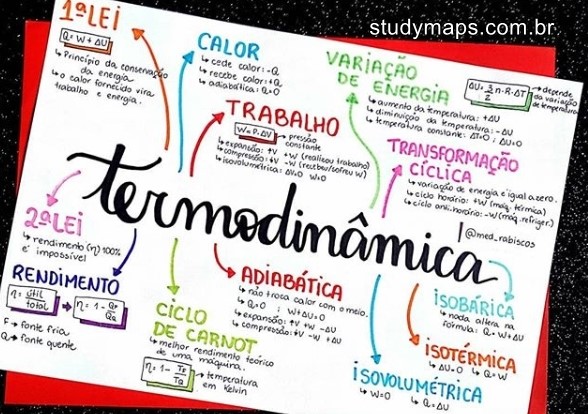 studymaps.com.br
1ª LEI
Q = W + ΔU
↳ Princípio da conservação
da energia
↳ o calor fornecido vira
trabalho e energia.
CALOR
↳ cede calor: -Q
↳ recebe calor: +Q
↳ adiabática: Q=0
VARIAÇÃO
DE ENERGIA
ΔU = 3/2 n·R·ΔT
depende
da variação
de temperatura
↳ aumento da temperatura: +ΔU
↳ diminuição da temperatura: -ΔU
↳ temperatura constante: ΔT=0 ∴ ΔU=0
TRABALHO
W = P·ΔV
pressão
constante
↳ expansão: ↑V +W (realizou trabalho)
↳ compressão: ↓V -W (recebeu/sofreu W)
↳ isovolumétrica: ΔV=0 W=0
TRANSFORMAÇÃO
CÍCLICA
↳ variação de energia é igual a zero.
↳ ciclo horário: +W (máq. térmica)
↳ ciclo anti-horário: -W (máq. refriger.)
termodinâmica
@med_rabiscos
2ª LEI
↳ rendimento (η) 100%
é impossível
RENDIMENTO
η = útil/total
η = 1 - QF/QQ
F → fonte fria
Q → fonte quente
CICLO
DE CARNOT
↳ melhor rendimento teórico
de uma máquina.
η = 1 - TF/TQ
temperatura
em Kelvin
ADIABÁTICA
↳ não troca calor com o meio.
↳ Q=0 ∴ W+ΔU=0
↳ expansão: ↑V +W -ΔU
↳ compressão: ↓V -W +ΔU
ISOBÁRICA
↳ nada altera na
fórmula: Q = W+ΔU
ISOTÉRMICA
↳ ΔU=0 ↳ Q = W
ISOVOLUMÉTRICA
↳ W=0 ↳ Q = ΔU